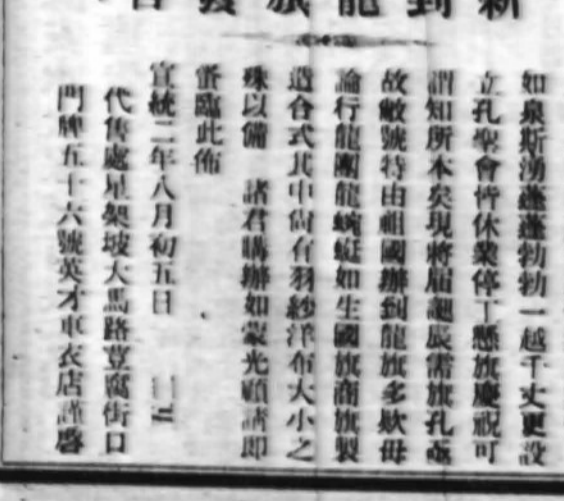 新到龍旗發售
如泉斯湧蓬蓬勃勃一越千丈更設
立孔聖會皆休業停工懸旗慶祝可
謂知所本矣現將屆誕辰需旗孔亟
故敝號特由祖國辦到龍旗多欵毋
論行龍團龍蜿蜒如生國旗商旗製
造合式其中尚有羽紗洋布大小之
殊以備 諸君購辦如蒙光顧請即
賁臨此佈
宣統二年八月初五日
代售處星架坡大馬路荳腐街口
門牌五十六號英才車衣店謹啓